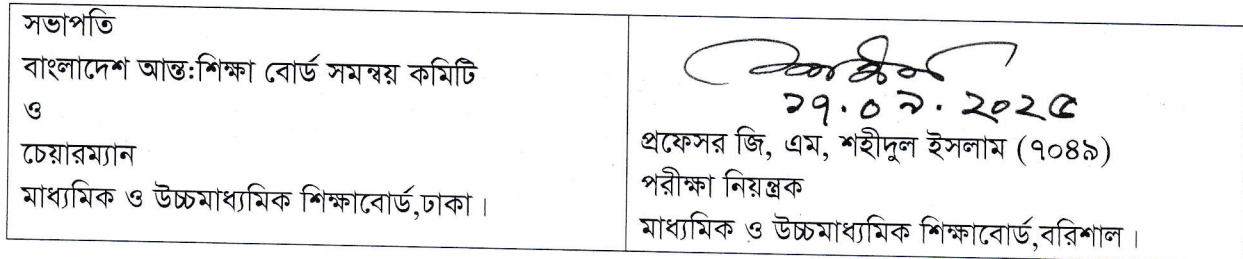 সভাপতি
বাংলাদেশ আন্ত:শিক্ষা বোর্ড সমন্বয় কমিটি
ও
চেয়ারম্যান
মাধ্যমিক ও উচ্চমাধ্যমিক শিক্ষাবোর্ড,ঢাকা।
১৭.০৯.২০২৫
প্রফেসর জি, এম, শহীদুল ইসলাম (৭০৪৯)
পরীক্ষা নিয়ন্ত্রক
মাধ্যমিক ও উচ্চমাধ্যমিক শিক্ষাবোর্ড,বরিশাল।